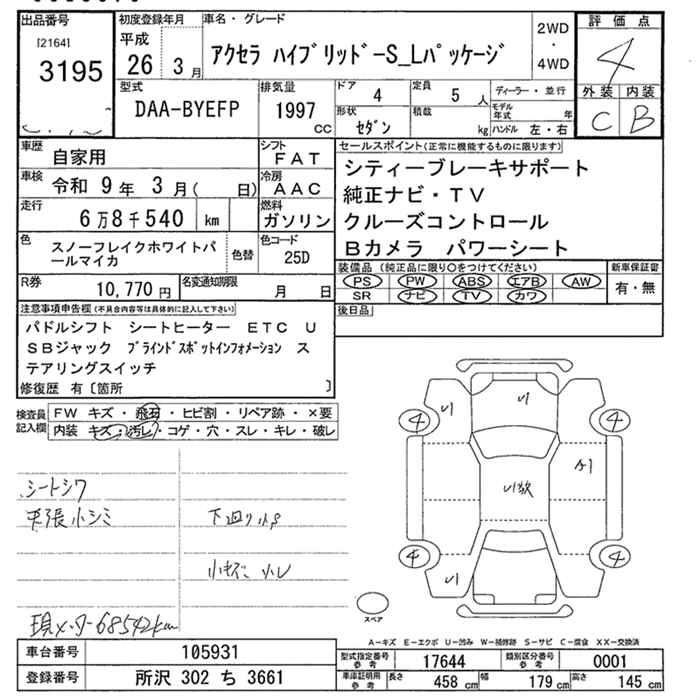 出品番号
[2164]
3195
初度登録年月
平成
26 3月
車名・グレード
アクセラ ハイブリッド-S_Lパッケージ
2WD
・
4WD
評価点
4
外装 内装
C B
型式
DAA-BYEFP
排気量
1997
CC
ドア
4
定員
5 人
ディーラー・並行
形状
セダン
積載
kg
モデル年式 年
ハンドル 左・右
車歴
自家用
シフト
FAT
車検
令和 9年 3月( 日)
冷房
AAC
走行
6万8千540 km
燃料
ガソリン
色
スノーフレイクホワイトパ
ールマイカ
色替
色コード
25D
R券
10,770円
名変通知期限
月 日
セールスポイント(正常に機能するものに限ります)
シティーブレーキサポート
純正ナビ・TV
クルーズコントロール
Bカメラ パワーシート
装備品(純正品に限り○をつけてください)
PS PW ABS エアB AW
SR ナビ TV カワ
新車保証書
有・無
後日品
注意事項申告欄(不具合内容等は具体的に記入して下さい)
パドルシフト シートヒーター ETC U
SBジャック ブラインドスポットインフォメーション ス
テアリングスイッチ
修復歴 有〔箇所 〕
検査員
記入欄
FW キズ・飛石・ヒビ割・リペア跡・×要
内装 キズ・汚レ・コゲ・穴・スレ・キレ・破レ
シートシワ
天張小シミ
下廻り小S
小キズ 小U
現メーター68542km
4
4
4
4
スペア
A-キズ E-エクボ U-凹み W-補修跡 S-サビ C-腐食 XX-交換済
車台番号
105931
登録番号
所沢 302 ち 3661
型式指定番号
参考
17644
類別区分番号
参考
0001
車庫証明用
参考
長さ 458 cm 幅 179 cm 高さ 145 cm